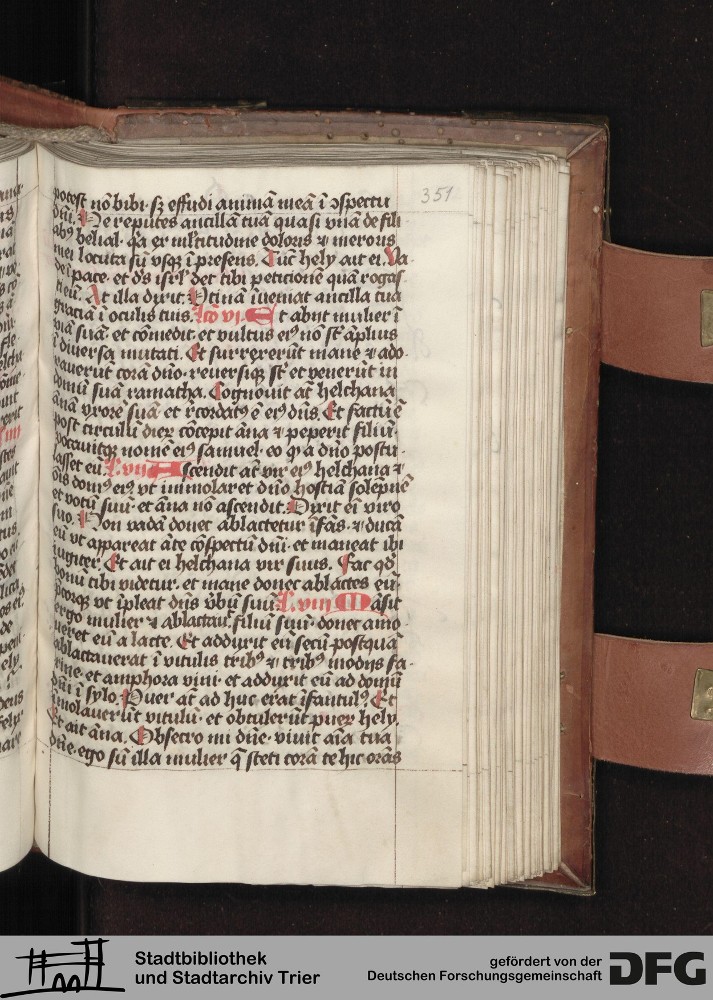 351
potest nō bibi· sꝫ effudi animā meā ī ↄspectu
dñi. Ne reputes ancillā tuā quasi vnā de fili
abꝰ belial· qꝛ er mltitudine doloris ⁊ meroris
mei locuta sū vsqꝫ ī presens. Tūc hely ait ei. Va
de ī pace· et ds isrl det tibi peticionē quā rogas
ti eū. At illa dixit. Vtinā īueniat ancilla tua
graciā ī oculis tuis. Lcō vi· Et abijt mulier ī
viā suā· et cōmedit· et vultus eiꝰ nō st āplius
ī diuersa mutati. Et surrexerūt mane ⁊ ado
rauerūt corā dño· reuersiqꝫ st et venerūt in
domū suā ramatha. Cognouit at helchana
ānā vxorē suā et rcordatꝰ ē eiꝰ dñs. Et factū ē
post circulū dierꝝ cōcepit āna ⁊ peperit filiū·
vocauitqꝫ nomē eiꝰ samuel· eo ꝙ a dño postu·
lasset eū. L. vij Ascendit at vir eiꝰ helchana ⁊
ōis domꝰ eiꝰ· vt immolaret dño hostiā solēpnē
et votū suū· et āna nō ascendit. Dixit ei viro
suo. Non vadā donec ablactetur īfās· ⁊ ducā
eū vt appareat āte cōspectū dñi· et maneat ibi
iugiter. Et ait ei helchana vir suus. Fac qd
bonū tibi videtur· et mane donec ablactes eū·
p̄corqꝫ vt īpleat dñs v̄bū suū. L. viij Māsit
ergo mulier ⁊ ablactau. filiū suū· donec amo·
ueret eū a lacte. Et adduxit eū secū postquā
ablactauerat ī vitulis tribꝰ ⁊ tribꝰ modijs fa·
rine· et amphora vini· et adduxit eū ad domū
dñi ī sylo. Puer at ad huc erat īfantulꝰ. Et
īmolauerūt vitulū· et obtulerūt puerꝝ hely.
Et ait āna. Obsecro mi dñe· viuit aīa tua
dñe· ego sū illa mulier q̄ steti corā te hic orās
Stadtbibliothek
und Stadtarchiv Trier
gefördert von der
Deutschen Forschungsgemeinschaft
DFG